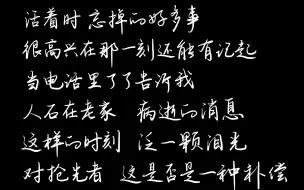 活着时 忘掉的好多事
很高兴在那一刻还能有记起
当电话里了了告诉我
人石在老家 病逝的消息
这样的时刻 泛一颗泪光
对抢先者 这是否是一种补偿